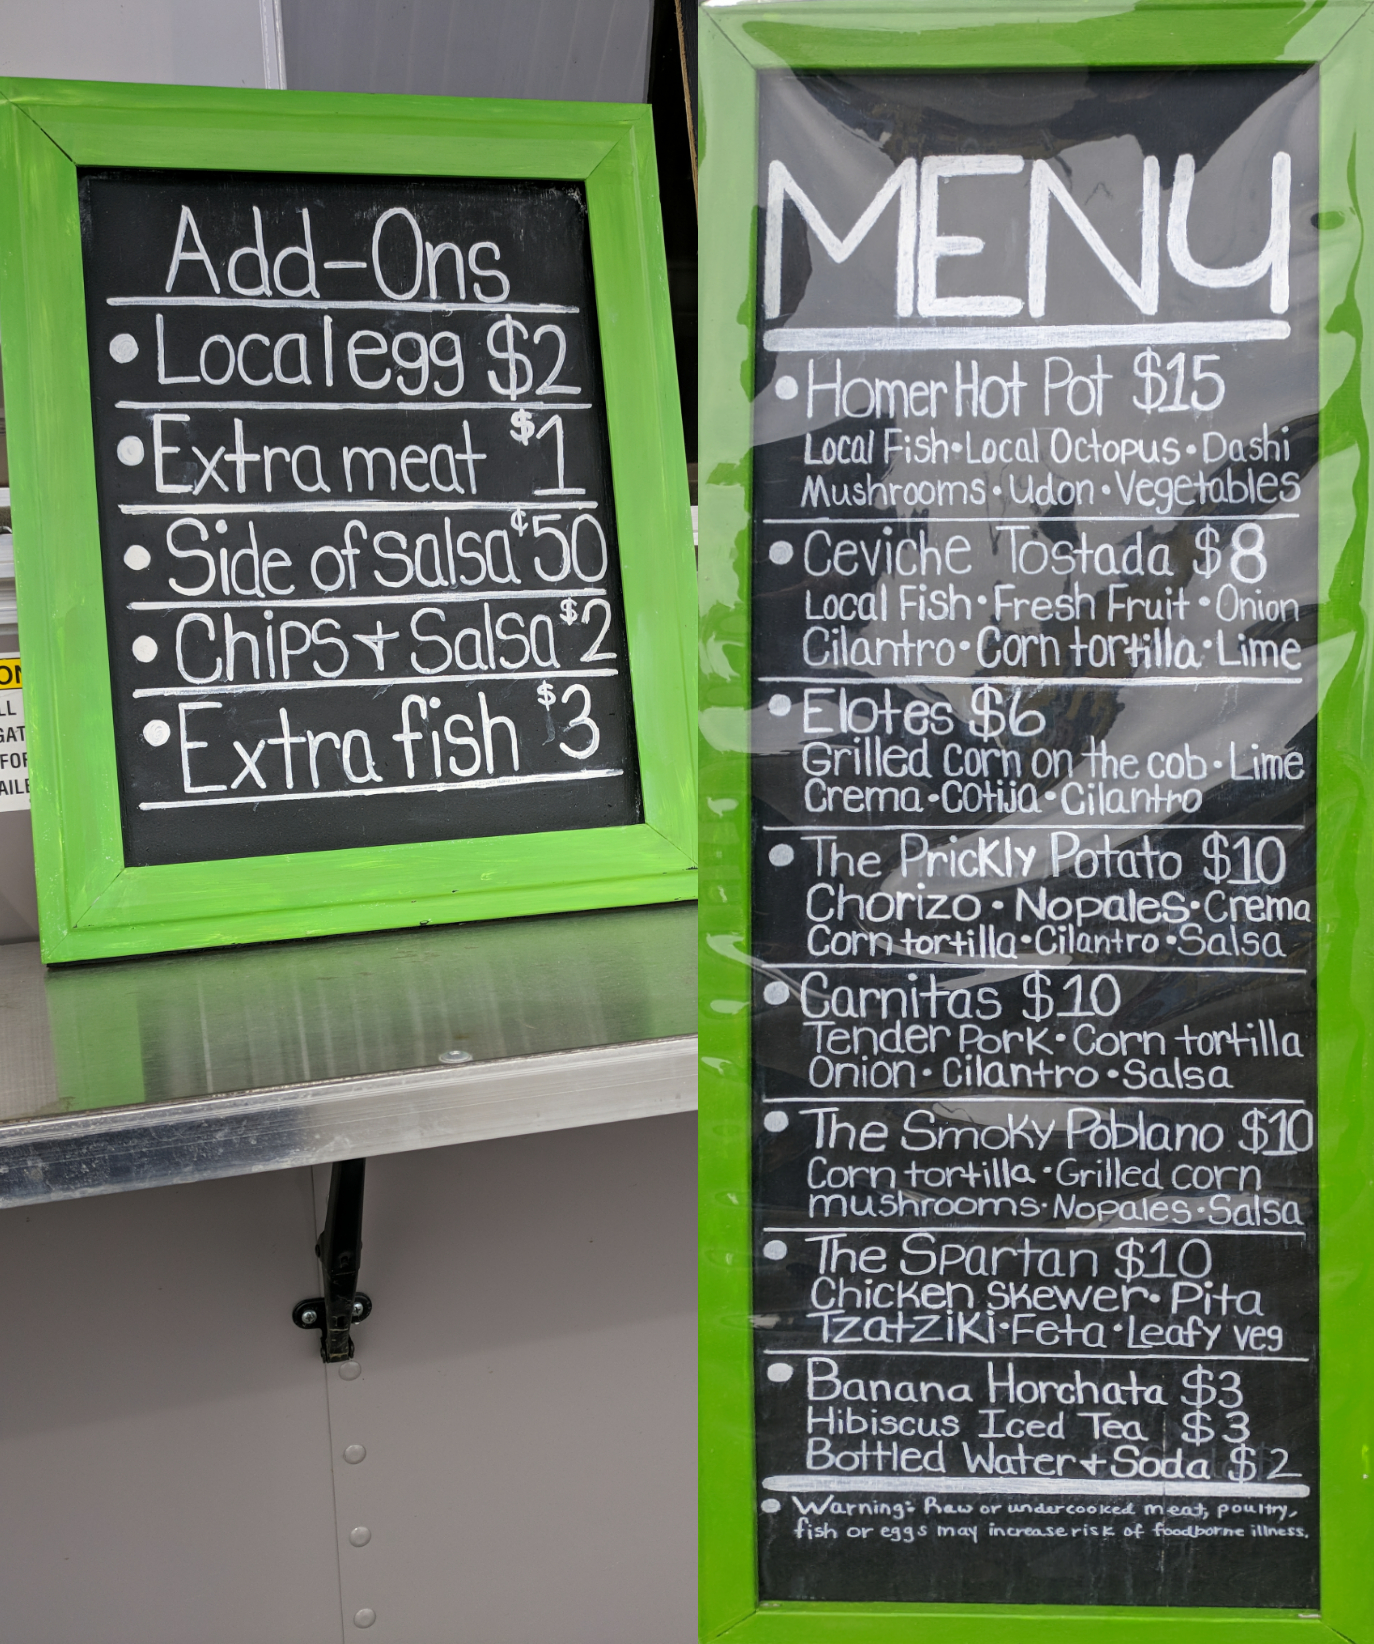 Add-Ons
•Local egg $2
•Extra meat $1
•Side of salsa ¢50
•Chips + Salsa $2
•Extra fish $3
MENU
•Homer Hot Pot $15
Local Fish•Local Octopus•Dashi
Mushrooms•Udon•Vegetables
•Ceviche Tostada $8
Local Fish•Fresh Fruit•Onion
Cilantro•Corn tortilla•Lime
•Elotes $6
Grilled corn on the cob•Lime
Crema•Cotija•Cilantro
•The Prickly Potato $10
Chorizo•Nopales•Crema
Corn tortilla•Cilantro•Salsa
•Carnitas $10
Tender Pork•Corn tortilla
Onion•Cilantro•Salsa
•The Smoky Poblano $10
Corn tortilla•Grilled corn
mushrooms•Nopales•Salsa
•The Spartan $10
Chicken skewer•Pita
Tzatziki•Feta•Leafy veg
•Banana Horchata $3
Hibiscus Iced Tea $3
Bottled Water+Soda $2
•Warning: Raw or undercooked meat, poultry,
fish or eggs may increase risk of foodborne illness.